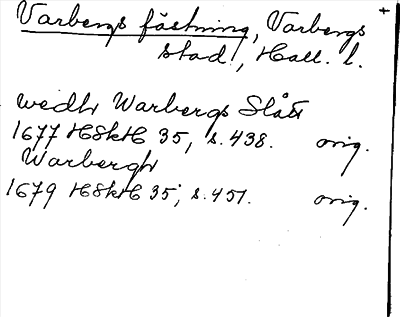 Varbergs fästning, Varbergs +
stad, Hall. l.
wedh Warbergs Slått
1677 HSkH 35, s. 438. orig.
Warbergh
1679 HSkH 35, s. 451. orig.